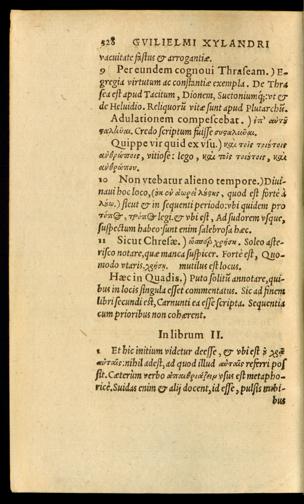 528 GVILIELMI XYLANDRI
vacuitate fastus & arrogantiæ.
9 Per eundem cognoui Thraseam.) E-
gregia virtutum ac constantiæ exempla. De Thra
sea est apud Tacitum, Dionem, Suetoniumq́;: vt &
de Heluidio. Reliquorũ vitæ sunt apud Plutarchũ.
Adulationem compescebat.) ἐπ' αὐτῷ
Credo scriptum fuisse
Quippe vir quid ex vsu.) καὶ τοῖς τοιούτοις
ἀνθρώποις, vitiose: lego, καὶ πῶς τοιούτοις, καὶ
ἀνθρώπου.
10 Non vtebatur alieno tempore.) Diui-
naui hoc loco, quod est
sicut & in sequenti periodo: vbi quidem pro
legi. & vbi est, Ad sudorem vsque,
suspectum habeo: sunt enim salebrosa hæc.
11 Sicut Chresæ.) Soleo aste-
risco notare, quæ manca suspicer. Forte est, Quo-
modo vtaris. χρήση. mutilus est locus.
Hæc in Quadis.) Puto soliti annotare, qui-
bus in locis singula esset commentatus. Sic ad finem
libri secundi est, Carnunti ea esse scripta. Sequentia
cum prioribus non cohærent.
In librum II.
1 Et hic initium videtur deesse, & vbi est
αὐταῖς: nihil adest, ad quod illud αὐταῖς referri pos
sit. Cæterùm verbo vsus est metapho-
ricè. Suidas enim & alij docent, id esse, pulsis nubi-
bus